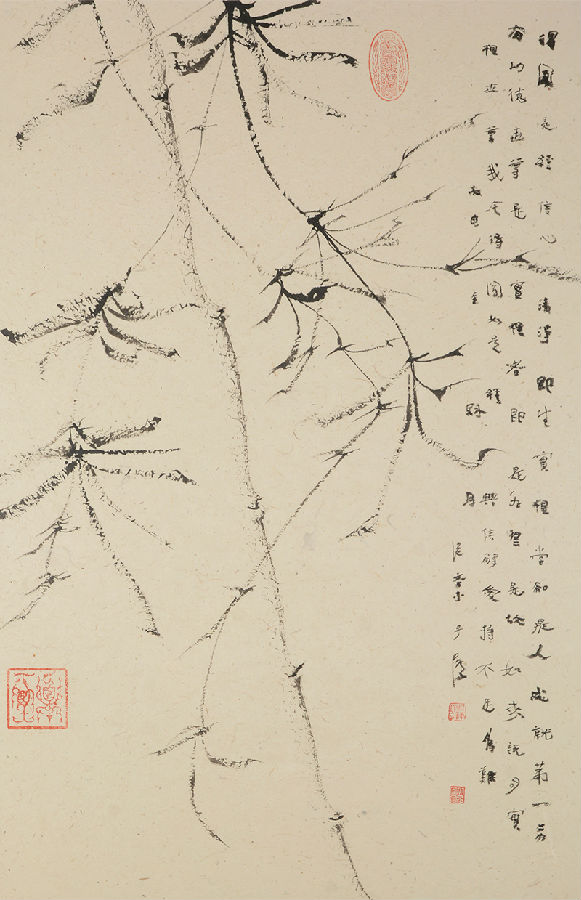 得聞是經信心清淨即生實相當知是人成就第一希
有功德世尊是實相者即是非相是故如來說名實
相世尊我今得聞如是經典信解受持不足為難